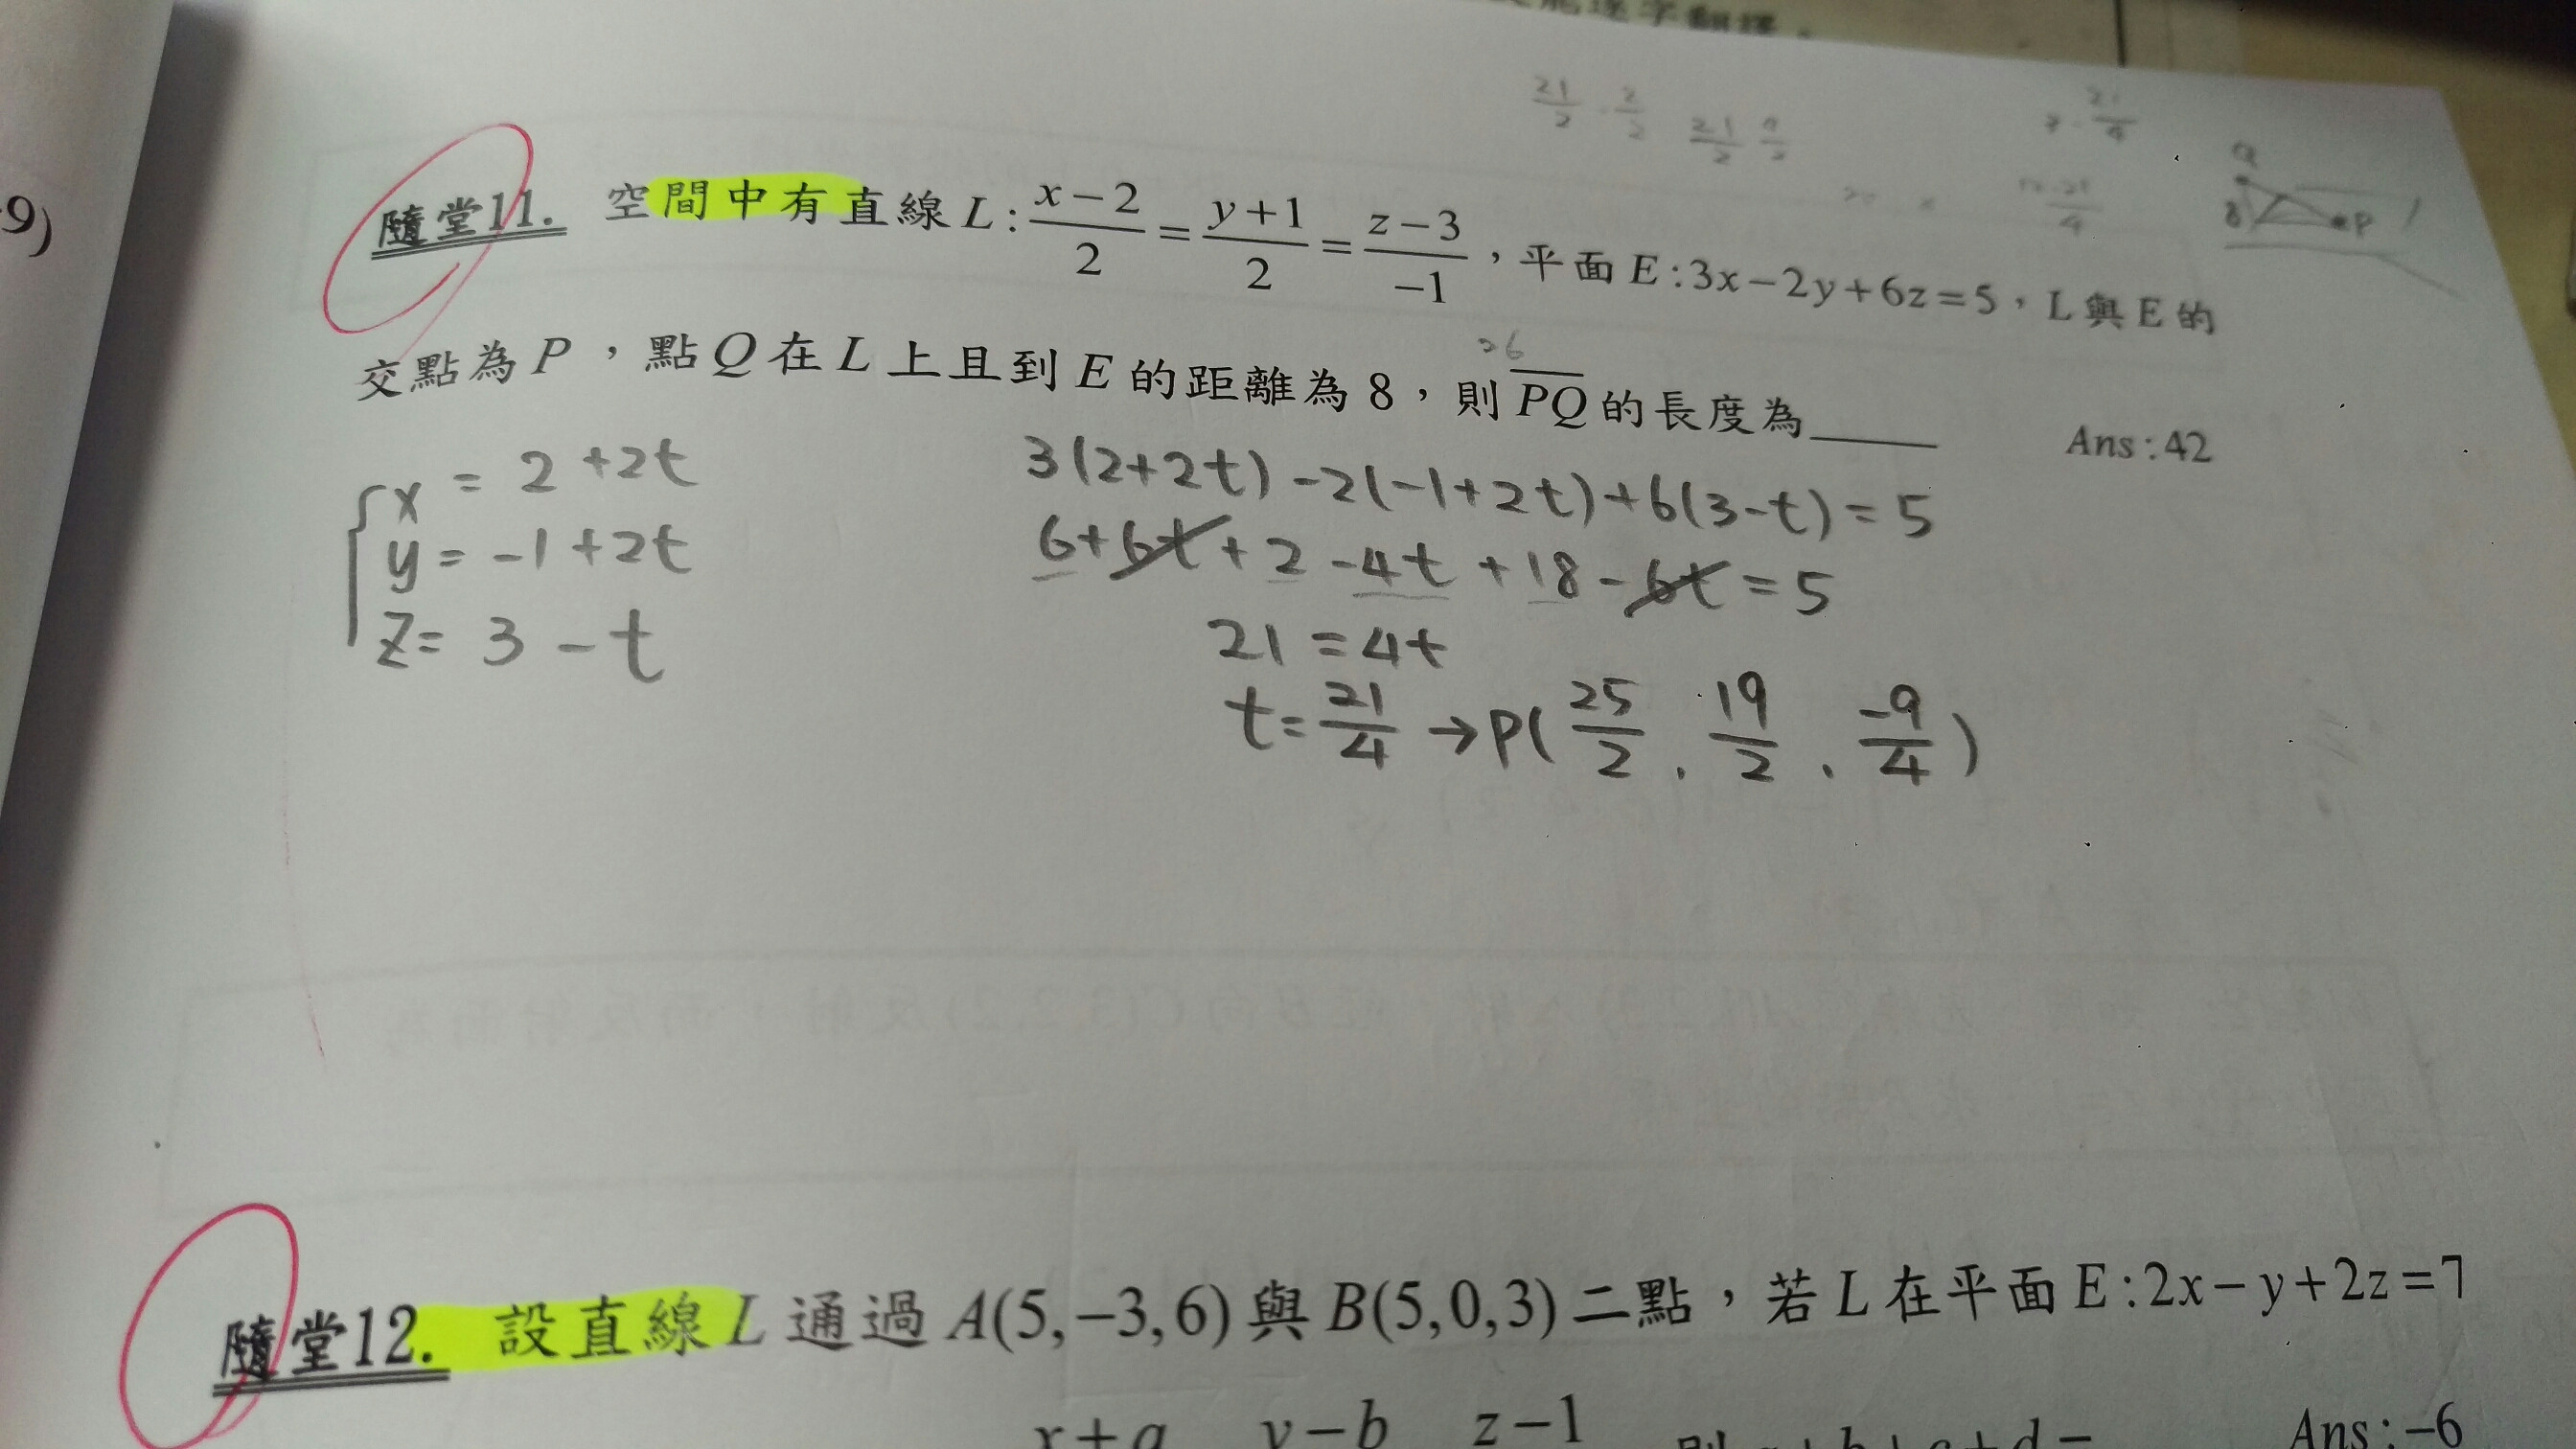 逐字翻譯，
9)
21/2 · 2/2 21/2 9/2
21/4
Q
8 P
隨堂11. 空間中有直線 L : (x-2)/2 = (y+1)/2 = (z-3)/-1 ，平面 E : 3x-2y+6z=5，L 與 E 的
交點為 P ，點 Q 在 L 上且到 E 的距離為 8，則 PQ 的長度為____ Ans : 42
x = 2 +2t
y = -1 +2t
z = 3 - t
3(2+2t) -2(-1+2t)+6(3-t) = 5
6+6t+2-4t+18-6t = 5
21 = 4t
t = 21/4 → P( 25/2 、 19/2 、 -9/4 )
隨堂12. 設直線 L 通過 A(5,-3,6) 與 B(5,0,3) 二點，若 L 在平面 E : 2x-y+2z=7
x+a y-b z-1 Ans : -6